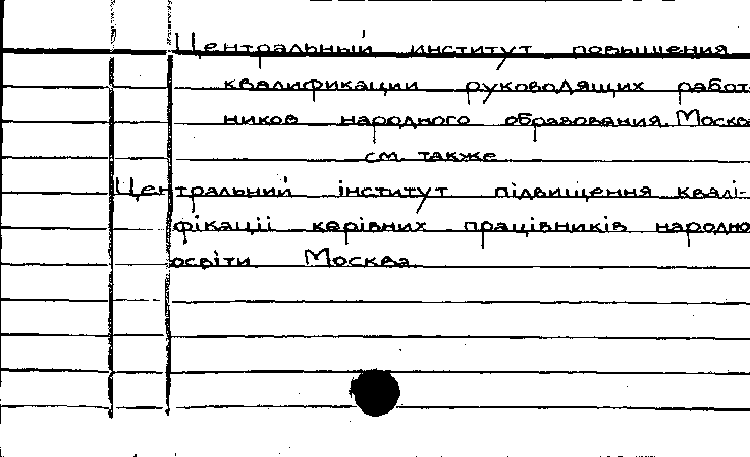 Центральный институт повышения
квалификации руководящих работ-
ников народного образования. Москва
см. также
Центральний інститут підвищення квалі-
фікації керівних працівників народно
освіти Москва